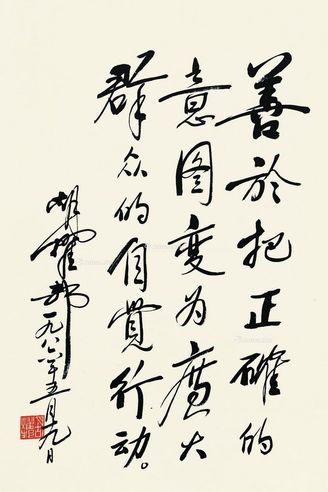 善於把正確的
意图变为廣大
群众的自覺行动。
胡耀邦一九八六年五月九日